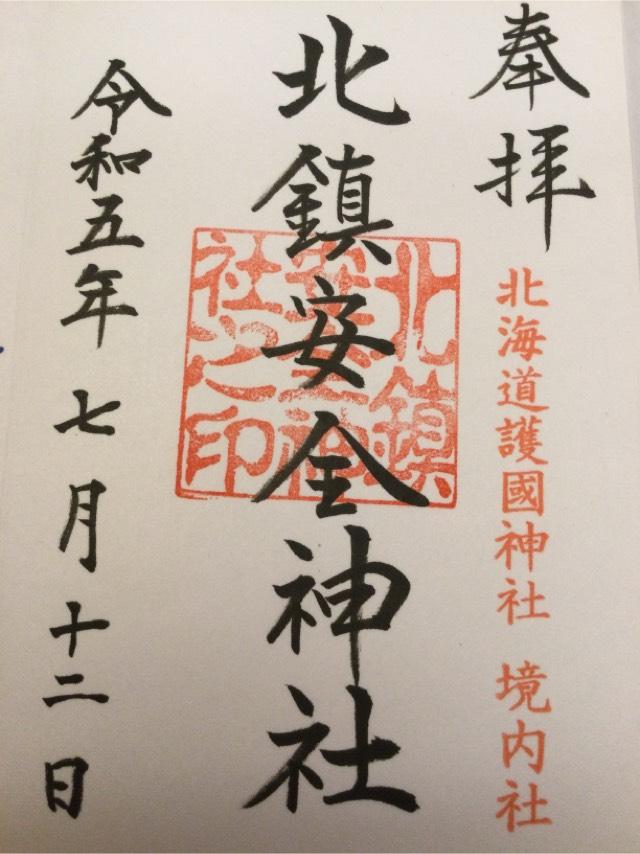 奉拝
北海道護國神社 境内社
北鎮安全神社
北鎮安全神社之印
令和五年七月十二日